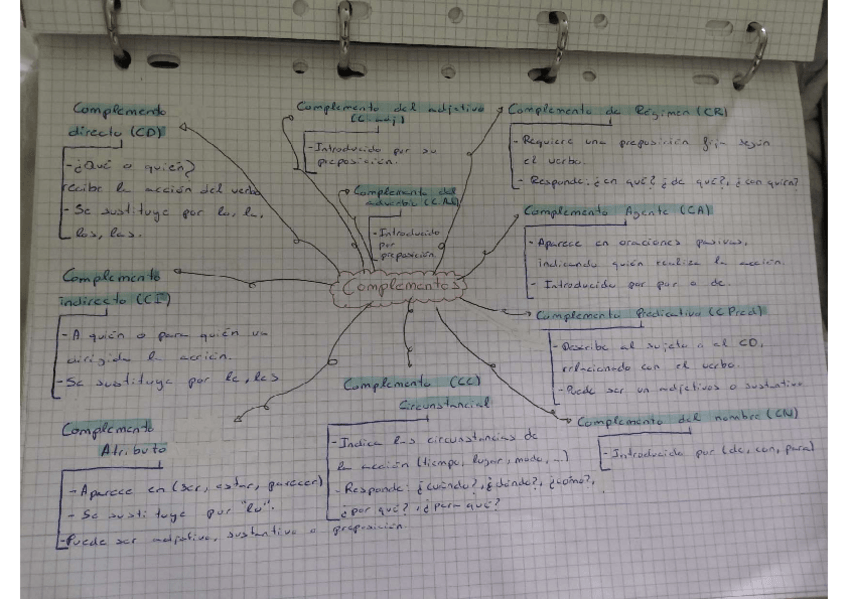 Complementos
Complemento
directo (CD)
- ¿Qué o quién?
recibe la acción del verbo
- Se sustituye por lo, la,
los, las.
Complemento del adjetivo
(C. adj)
- Introducido por su
preposición.
Complemento del
adverbio (C. Adv)
- Introducido
por
preposición.
Complemento de Régimen (CR)
- Requiere una preposición fija según
el verbo.
- Responde: ¿en qué? ¿de qué?, ¿con quién?
Complemento Agente (CA)
- Aparece en oraciones pasivas,
indicando quién realiza la acción.
- Introducido por por o de.
Complemento Predicativo (C Pred)
- Describe al sujeto o al CD,
relacionado con el verbo.
- Puede ser un adjetivos o sustantivo
Complemento del nombre (CN)
- Introducido por (de, con, para)
Complemento (CC)
Circunstancial
- Indica las circunstancias de
la acción (tiempo, lugar, modo, ...)
- Responde: ¿cuándo?, ¿dónde?, ¿cómo?,
¿por qué?, ¿para qué?
Complemento
indirecto (CI)
- A quién o para quién va
dirigida la acción.
- Se sustituye por le, les
Complemento
Atributo
- Aparece en (ser, estar, parecer)
- Se sustituye por "lo".
- Puede ser adjetivo, sustantivo o preposición.